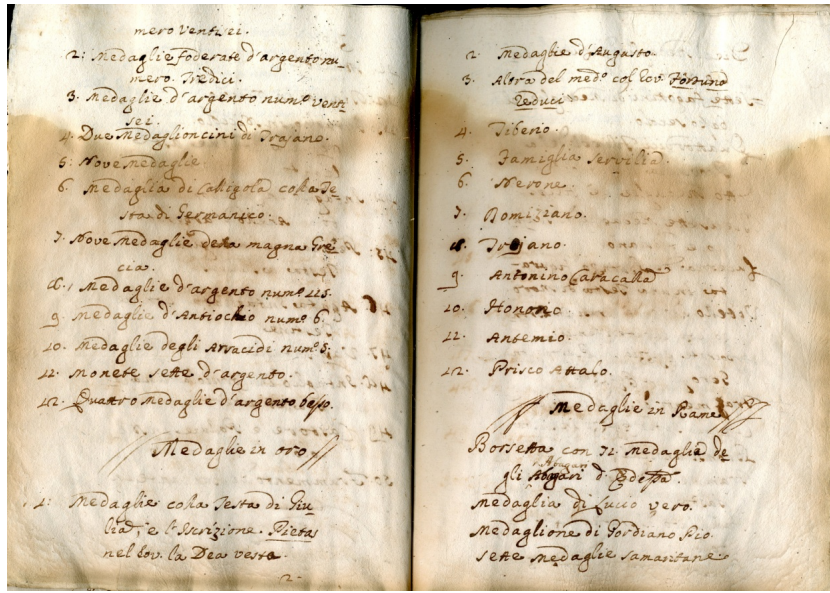 mero Ventisei.
2: Medaglie foderate d'argento nu-
mero Tredici.
3. Medaglie d'argento num.o venti
sei.
4. Due Medaglioncini di Trajano.
5: Nove Medaglie.
6. Medaglia di Caligola colla Te-
sta di Germanico.
7. Nove Medaglie della magna Gre
cia.
8. Medaglie d'argento num.o 115.
9. Medaglie d'Antiochio num.o 6.
10. Medaglie degli Arsacidi num.o 5;
11. Monete sette d'argento.
12. Quattro Medaglie d'argento basso.
Medaglie in oro
1: Medaglie colla Testa di Giu-
lia, e l'Iscrizione. Pietas
nel rov. la Dea vesta.
2.
2. Medaglie d'Augusto.
3. Altra del med.o col rov. Fortuna
Reduci
4. Tiberio.
5. Famiglia Servilia.
6. Nerone.
7. Domiziano.
8. Trajano.
9. Antonino Caracalla
10. Honorio
11. Antemio.
12. Prisco Attalo.
Medaglie in Rame
Borsetta con 72 Medaglia de
gli Abgari d'Edessa.
Medaglia di Lucio vero.
Medaglione di Gordiano Pio.
sette Medaglie Samaritane